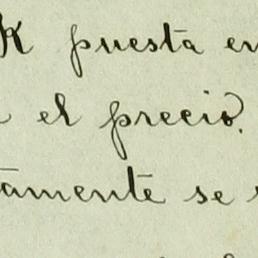 K puesta en
el precio.
tamente se